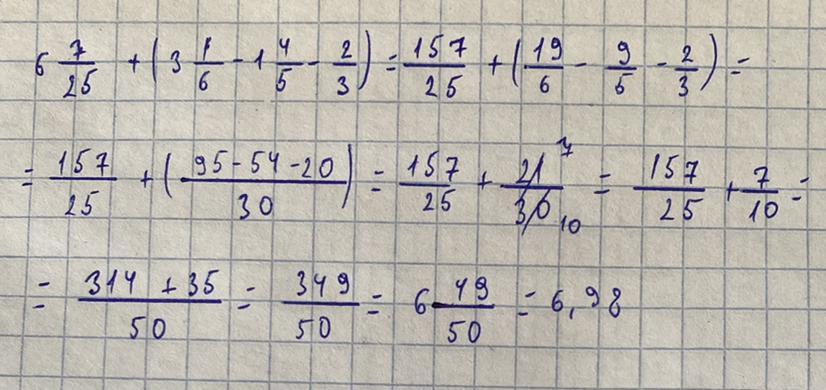 6 7/25 + (3 1/6 - 1 4/5 - 2/3) = 157/25 + (19/6 - 9/5 - 2/3) =
= 157/25 + (95 - 54 - 20/30) = 157/25 + 21/30 7 10 = 157/25 + 7/10 =
= 314 + 35/50 = 349/50 = 6 49/50 = 6,98